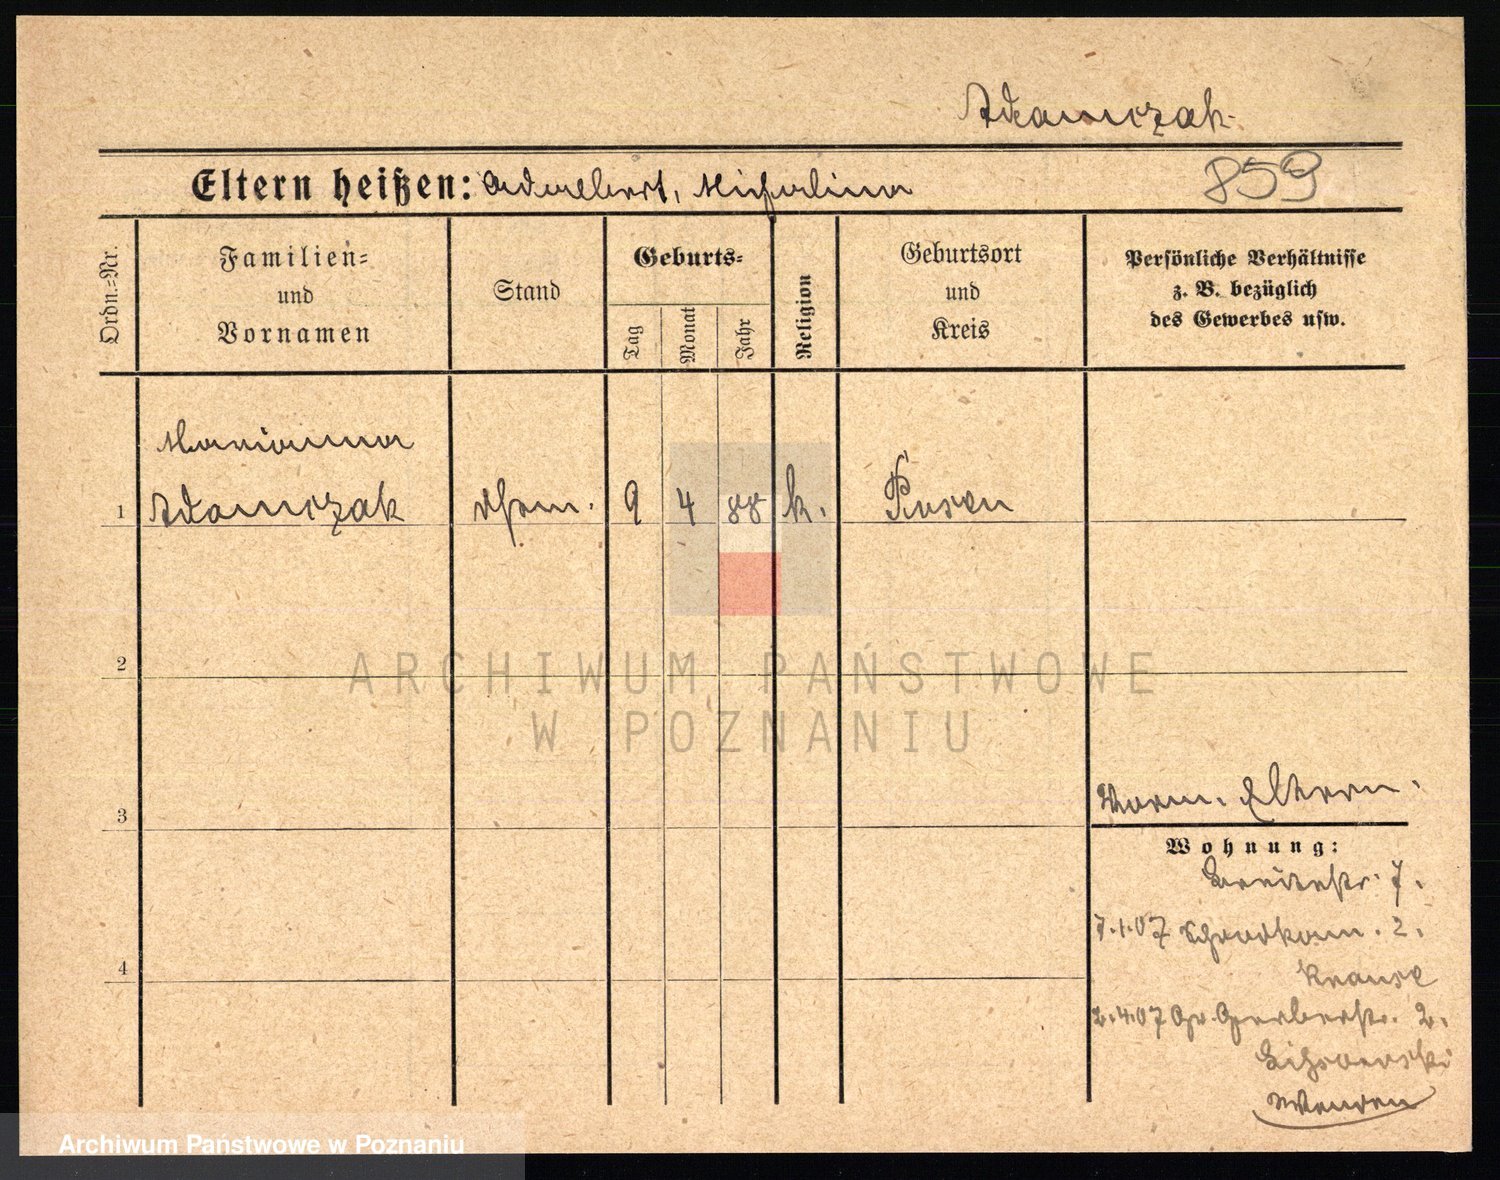 Adamczak
Eltern heißen: Adalbert, Michalina
859
Ordn.=Nr.
Familien=
und
Vornamen
Stand
Geburts=
Tag
Monat
Jahr
Religion
Geburtsort
und
Kreis
Persönliche Verhältnisse
z. B. bezüglich
des Gewerbes usw.
Marianna
1 Adamczak 9 4 88 k. Posen
2
ARCHIWUM PAŃSTWOWE
W POZNANIU
3
Eltern.
Wohnung:
Breitestr. 7.
7.1.07 2.
Krause
4
2.4.07 Gr. Gerberstr. 2.
Archiwum Państwowe w Poznaniu